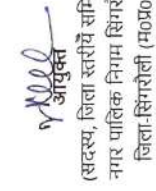 आयुक्त
(सदस्य, जिला स्तरीय समि
नगर पालिक निगम सिंगरौ
जिला-सिंगरौली (म०प्र०